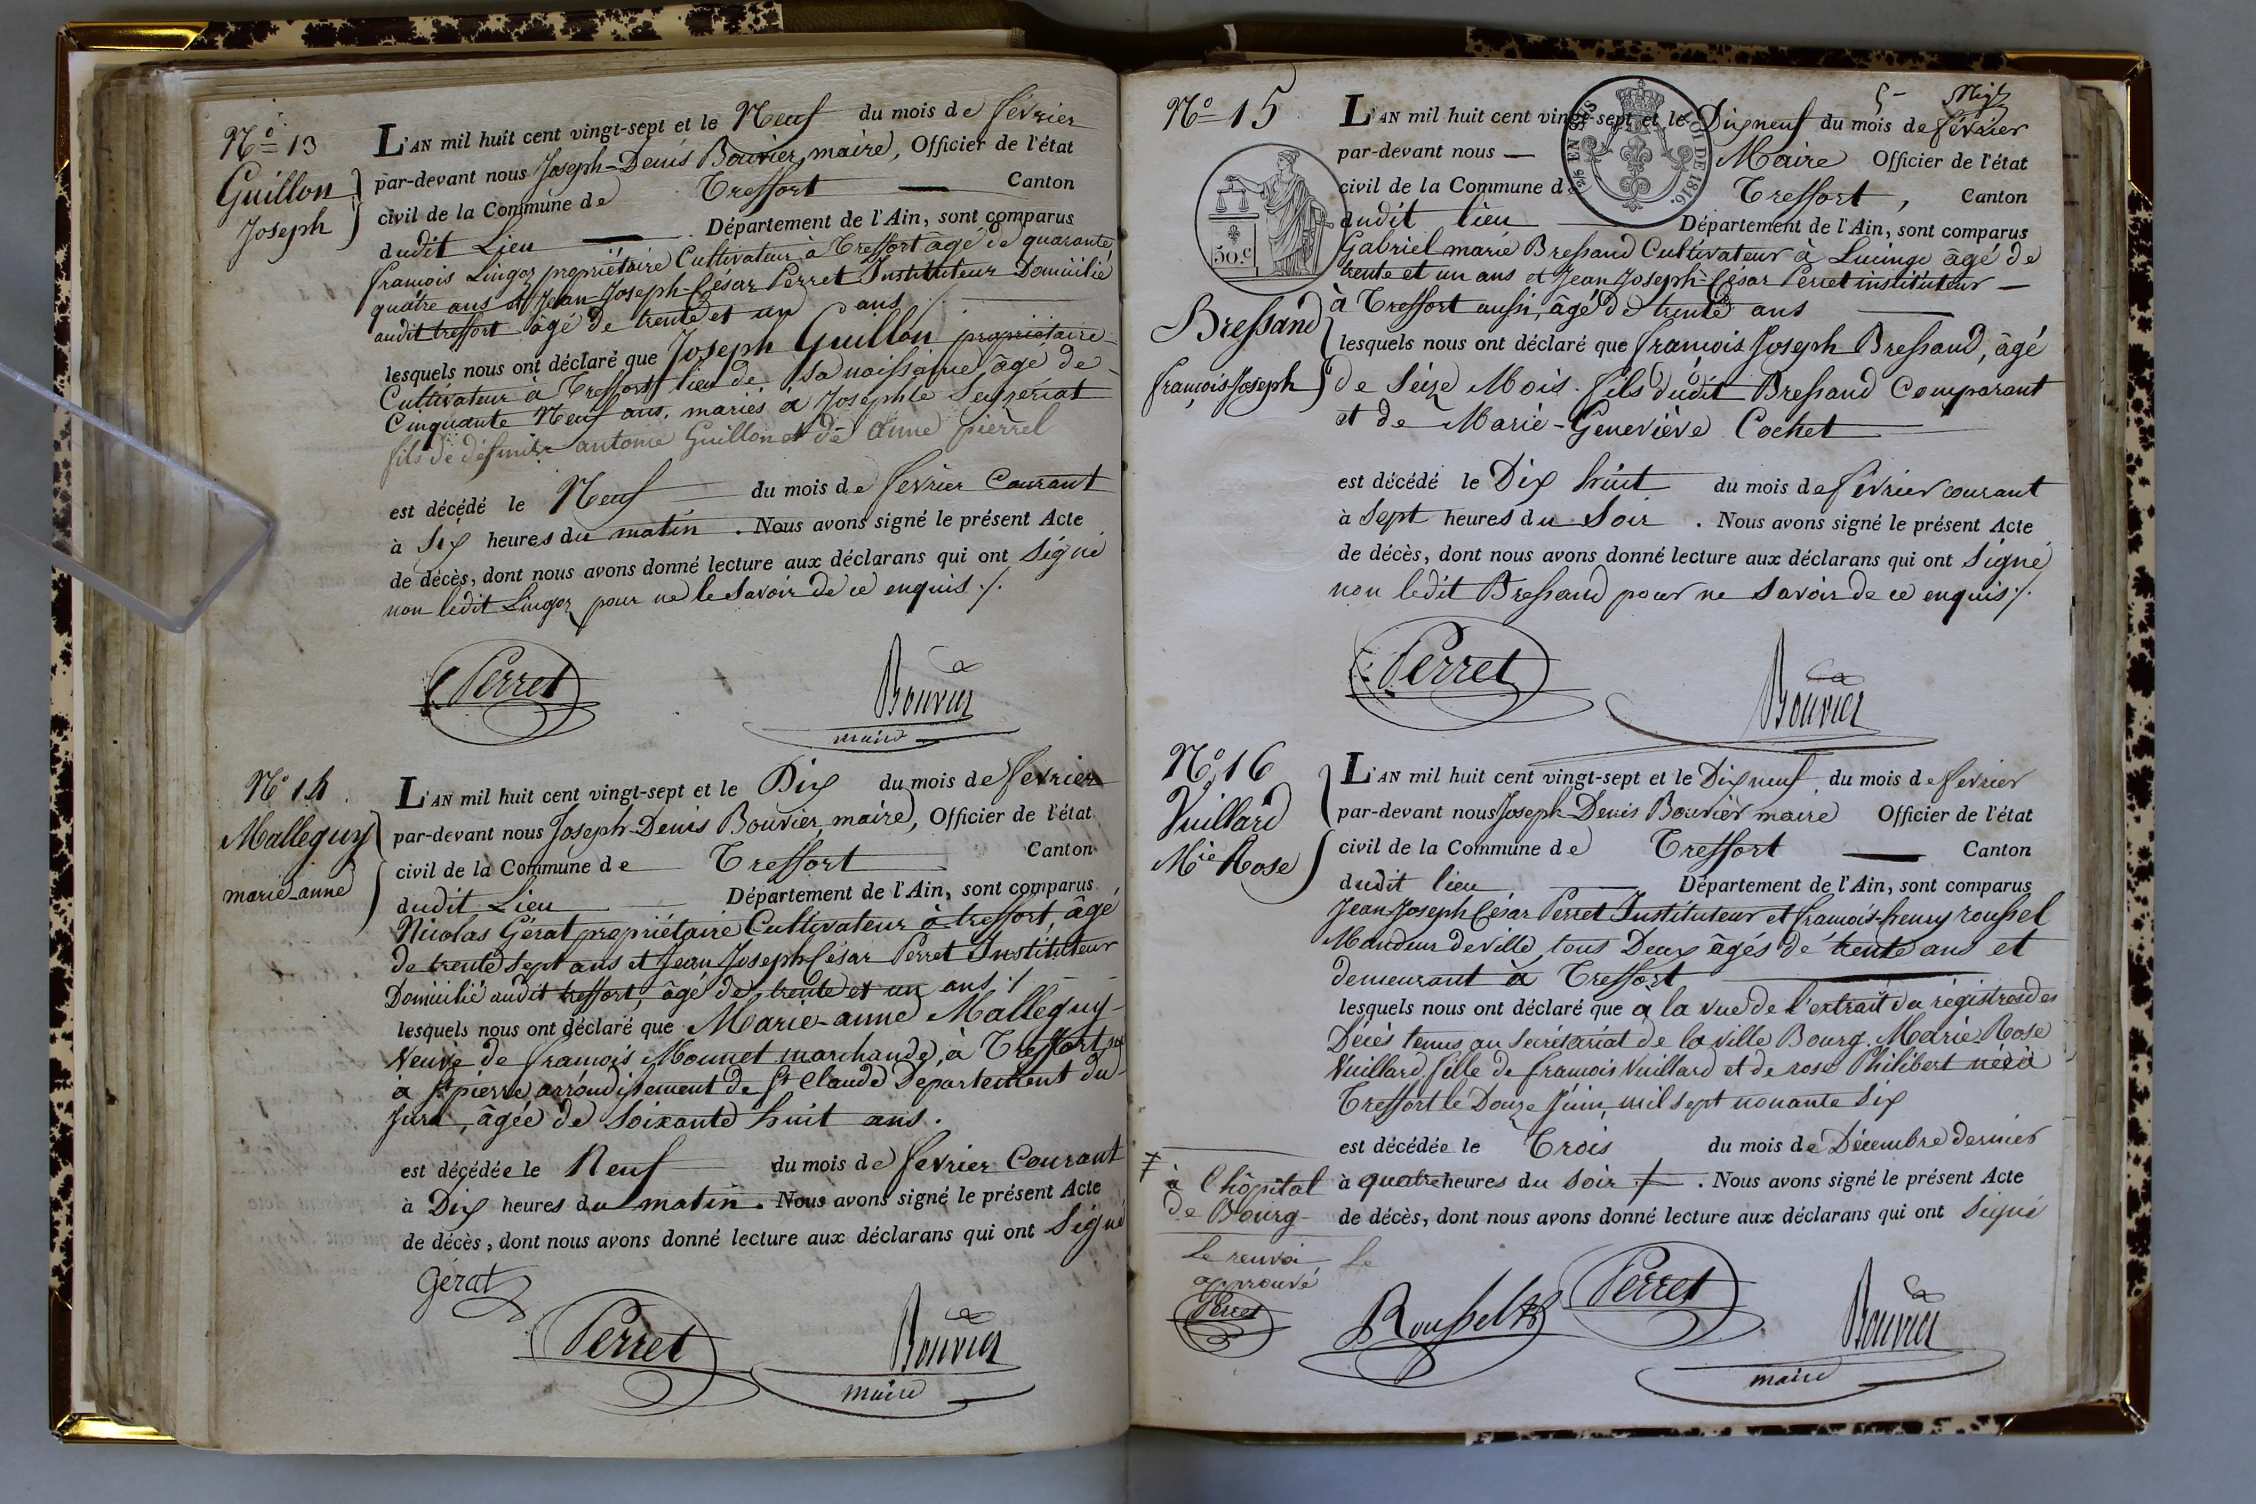 N.o 13
Guillon
Joseph
L'AN mil huit cent vingt-sept et le Neuf du mois de février
par-devant nous Joseph-Denis Bouvier, maire, Officier de l'état
civil de la Commune de Treffort Canton
dudit Lieu Département de l'Ain, sont comparus
françois Lingoz propriétaire Cultivateur à Treffort âgé de quarante
quatre ans et Jean-Joseph-César Perret Instituteur Domicilié
audit treffort âgé de trente et un ans
lesquels nous ont déclaré que Joseph Guillon propriétaire
Cultivateur à Treffort lieu de sa naissance âgé de
Cinquante Neuf ans, mariés à Josephte
fils de défunts antoine Guillon et de anne pierrel
est décédé le Neuf du mois de fevrier Courant
à Six heures du matin. Nous avons signé le présent Acte
de décès, dont nous avons donné lecture aux déclarans qui ont Signé
non ledit Lingoz pour ne le Savoir de ce enquis ./.
Perret
Bouvier
maire
N.o 14
Malleguy
marie-anne
L'AN mil huit cent vingt-sept et le Dix du mois de fevrier
par-devant nous Joseph-Denis Bouvier, maire, Officier de l'état
civil de la Commune de Treffort Canton
dudit Lieu Département de l'Ain, sont comparus
Nicolas Gérat propriétaire Cultivateur à treffort, âgé
de trente sept ans et Jean Joseph César Perret Instituteur
Domicilié audit treffort, âgé de trente et un ans ./
lesquels nous ont déclaré que Marie-anne Malleguy
Veuve de françois Monnet marchande, à Treffort, née
à St pierre arrondissement de St Claude Département du
Jura, âgée de Soixante huit ans.
est décédée le Neuf du mois de fevrier Courant
à Dix heures du matin. Nous avons signé le présent Acte
de décès, dont nous avons donné lecture aux déclarans qui ont Signé
Gérat
Perret
Bouvier
maire
5
N.o 15
L'AN mil huit cent vingt-sept et le Dix neuf du mois de février
par-devant nous Maire Officier de l'état
civil de la Commune d Treffort, Canton
dudit lieu Département de l'Ain, sont comparus
EN SUS
LOI DE 1816.
50.c
Gabriel marie Bressand Cultivateur à Lucinge âgé de
trente et un ans et Jean Joseph-César Perret instituteur
à Treffort aussi, âgé de trente ans
Bressand
françois Joseph
lesquels nous ont déclaré que françois Joseph Bressand, âgé
de Seize Mois. fils dudit Bressand Comparant
et de Marie-Geneviève Cochet
est décédé le Dix huit du mois de février courant
à Sept heures du Soir. Nous avons signé le présent Acte
de décès, dont nous avons donné lecture aux déclarans qui ont Signé
non ledit Bressand pour ne Savoir de ce enquis ./.
Perret
Bouvier
N.o 16
Vuillard
Mie Rose
L'AN mil huit cent vingt-sept et le Dix neuf du mois de fevrier
par-devant nous Joseph-Denis Bouvier maire Officier de l'état
civil de la Commune de Treffort Canton
dudit lieu Département de l'Ain, sont comparus
Jean-Joseph César Perret Instituteur et françois-henry roussel
Mandeur de ville, tous Deux âgés de trente ans et
demeurant à Treffort
lesquels nous ont déclaré que a la vue de l'extrait du régistres des
Décès tenus au Secrétariat de la ville Bourg. Marie Rose
Vuillard, fille de françois Vuillard et de rose Philibert née à
Treffort le Douze Juin, mil sept nonante Six
est décédée le Trois du mois de Décembre dernier
à quatre heures du Soir. Nous avons signé le présent Acte
de décès, dont nous avons donné lecture aux déclarans qui ont Signé
à l'hôpital
de Bourg
Le renvoi
approuvé
Perret
Le
Roussel
Perret
Bouvier
maire